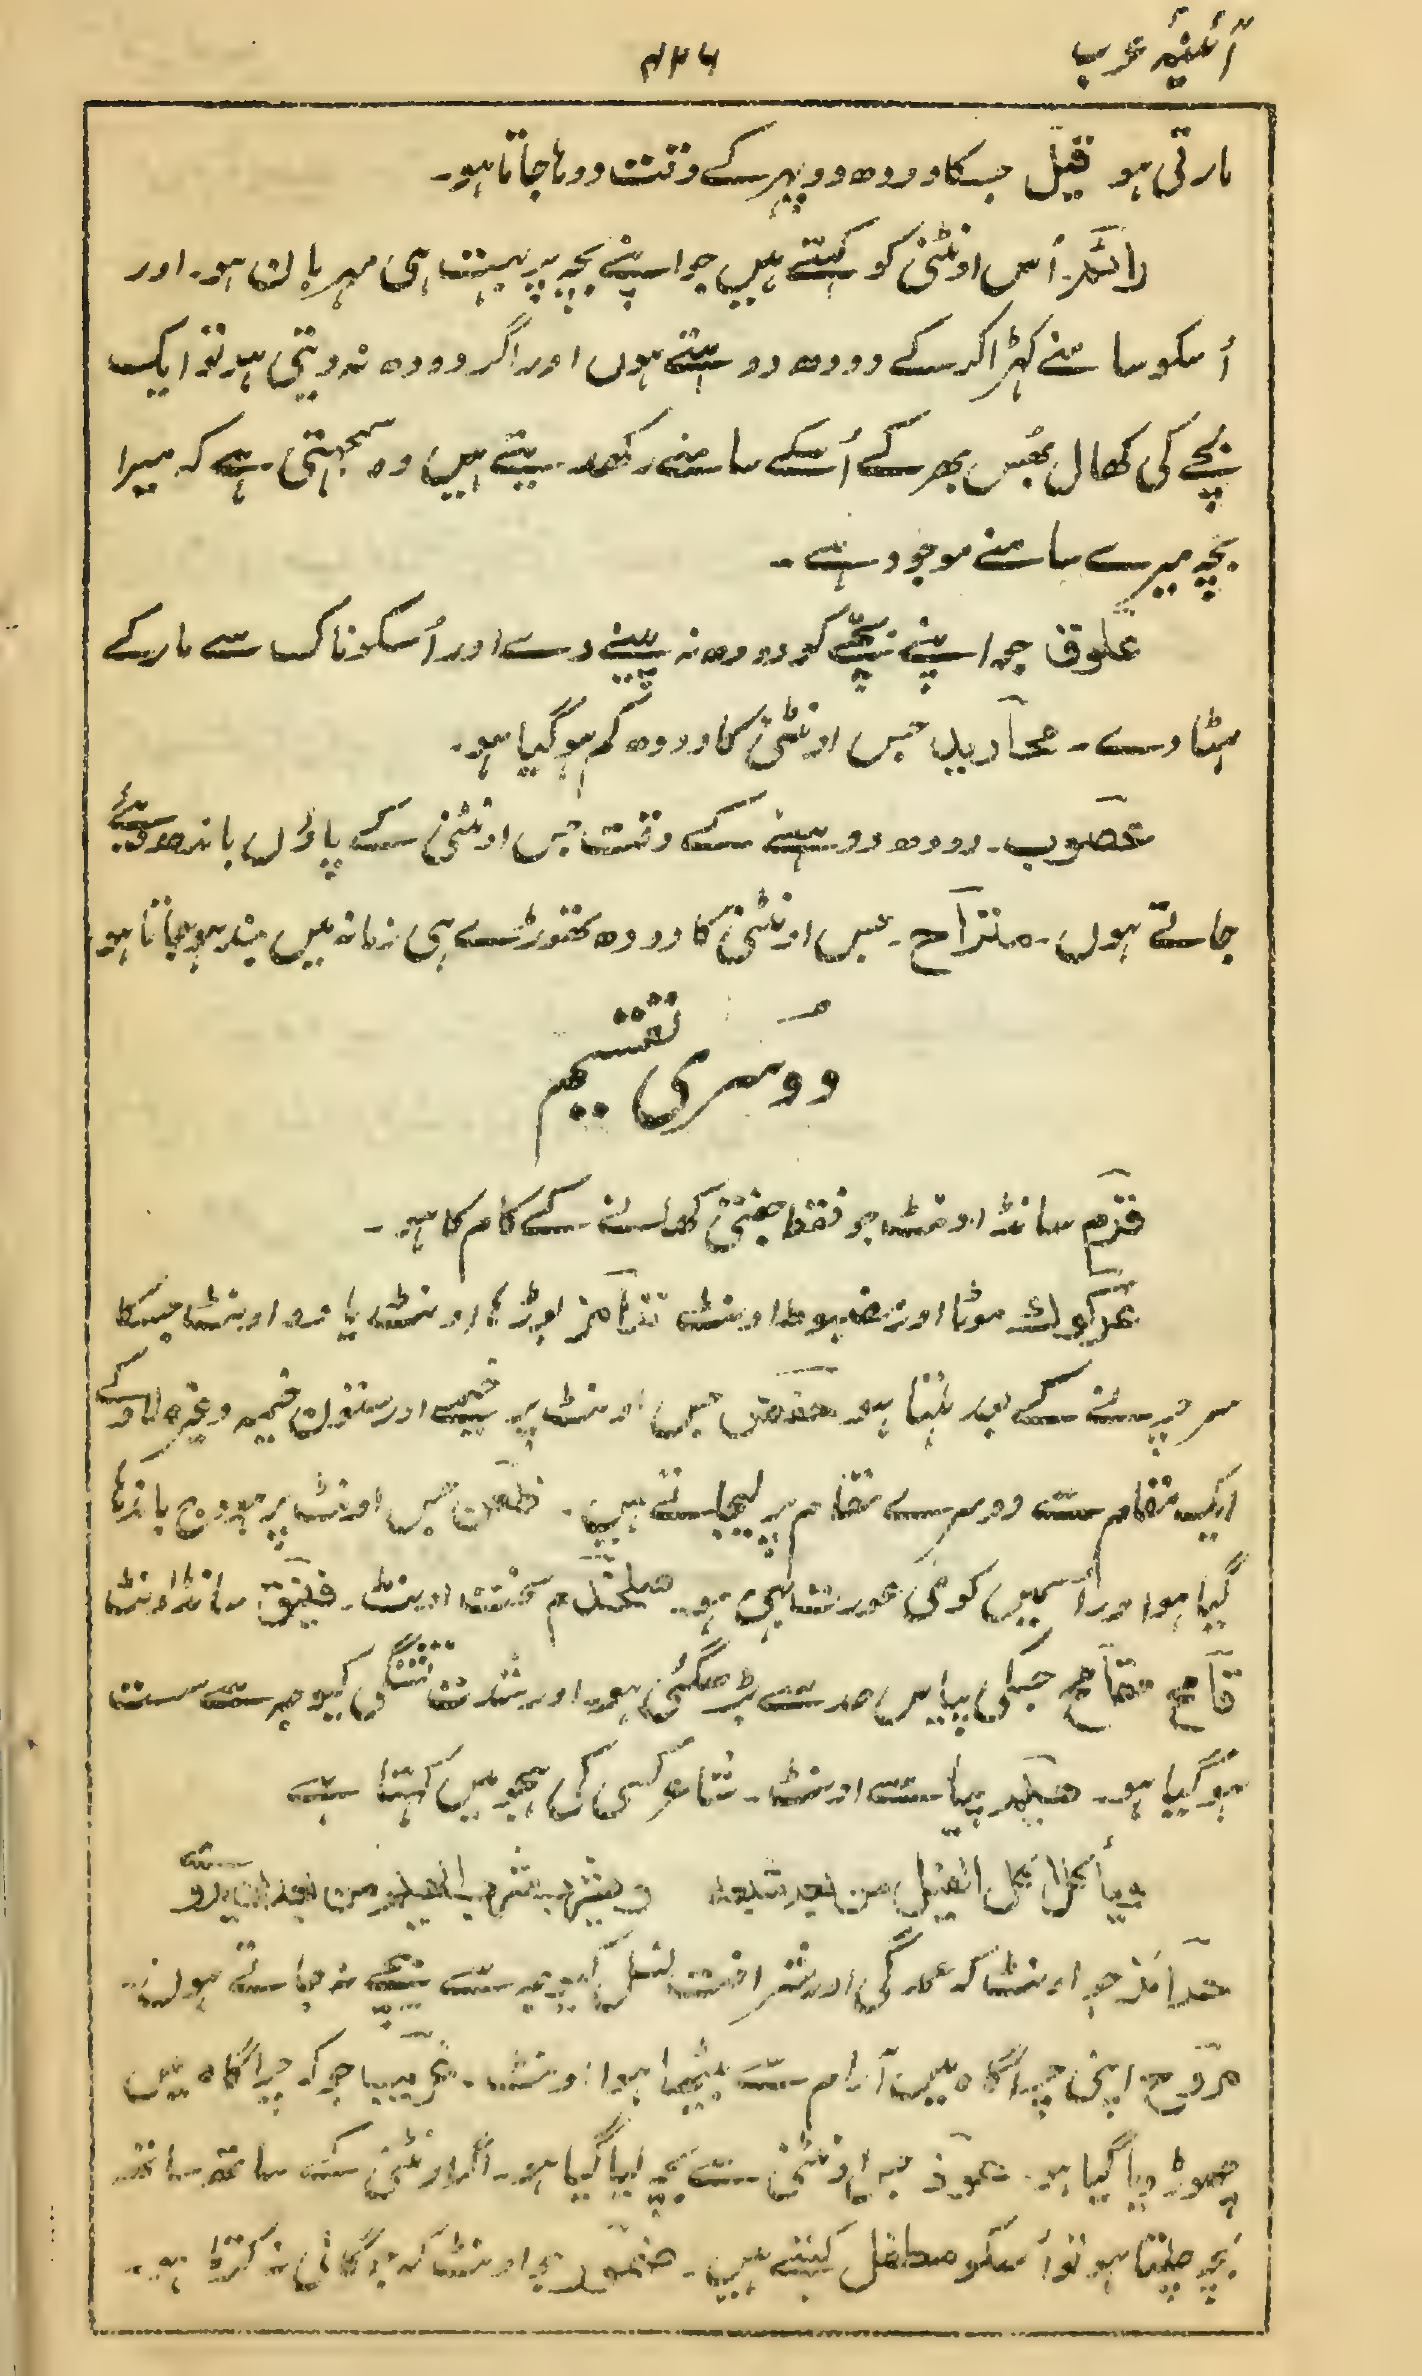 آئینۂ عرب
۲۲۶
مارتی ہو قیل جسکا دودھ دوپہر کے وقت دوہا جاتا ہو۔
رائم۔ اُس اونٹنی کو کہتے ہیں جو اپنے بچہ پر بہت ہی مہربان ہو۔ اور
اُسکو سامنے کھڑا کرکے دودھ دوہتے ہوں اور اگر دودھ نہ دیتی ہو تو ایک
بچے کی کھال بھُس بھر کے اُسکے سامنے رکھدیتے ہیں وہ سمجہتی ہے کہ میرا
بچہ میرے سامنے موجود ہے۔
عَلوق جو اپنے بچے کو دودھ نہ پینے دے اور اُسکو ناک سے مارکے
ہٹا دے۔ محارد جس اونٹنی کا دودھ کم ہو گیا ہو۔
عصوب۔ دودھ دوہنے کے وقت جس اونٹنی کے پاؤں باندھ دیئے
جاتے ہوں۔ منزاح۔ جس اونٹنی کا دودھ تھوڑے ہی زمانہ میں بند ہو جاتا ہو
دوسری تقسیم
قرم سانڈ اونٹ جو فقط جفتی کھانے کے کام کا ہو۔
عرکوک موٹا اور مضبوط اونٹ ترامز بوڑھا اونٹ یا وہ اونٹ جسکا
سر چرنے کے بعد ہلتا ہو حفض جس اونٹ پر خیمے اور ستون خیمہ وغیرہ لاد کے
ایک مقام سے دوسرے مقام پر لیجاتے ہیں۔ ظعون جس اونٹ پر ہودج باندھا
گیا ہو اور اُسمیں کوئی عورت بھی ہو۔ صلخدم سخت اونٹ۔ فنیق سانڈ اونٹ
قامح مقامح جسکی پیاس حد سے بڑھ گئی ہو اور شدت تشنگی کیوجہ سے سست
ہو گیا ہو۔ ھیم پیاسے اونٹ۔ شاعر کسی کی ہجو میں کہتا ہے
ویأکل اکل الفیل من بعد شبعہ ویشرب شرب الھیم من بعد ان یروے
جو اونٹ کہ عمدگی اور شرافت نسل کیوجہ سے بیچے نہ جاتے ہوں۔
مروح اپنی چراگاہ میں آرام سے بیٹھا ہوا اونٹ۔ جو کہ چراگاہ میں
چھوڑ دیا گیا ہو۔ جس اونٹنی سے بچہ لیا گیا ہو۔ اگر اونٹنی کے ساتھ ساتھ
بچہ چلتا ہو تو اُسکو مطفل کہتے ہیں۔ اونٹ کہ جگالی نہ کرتا ہو۔